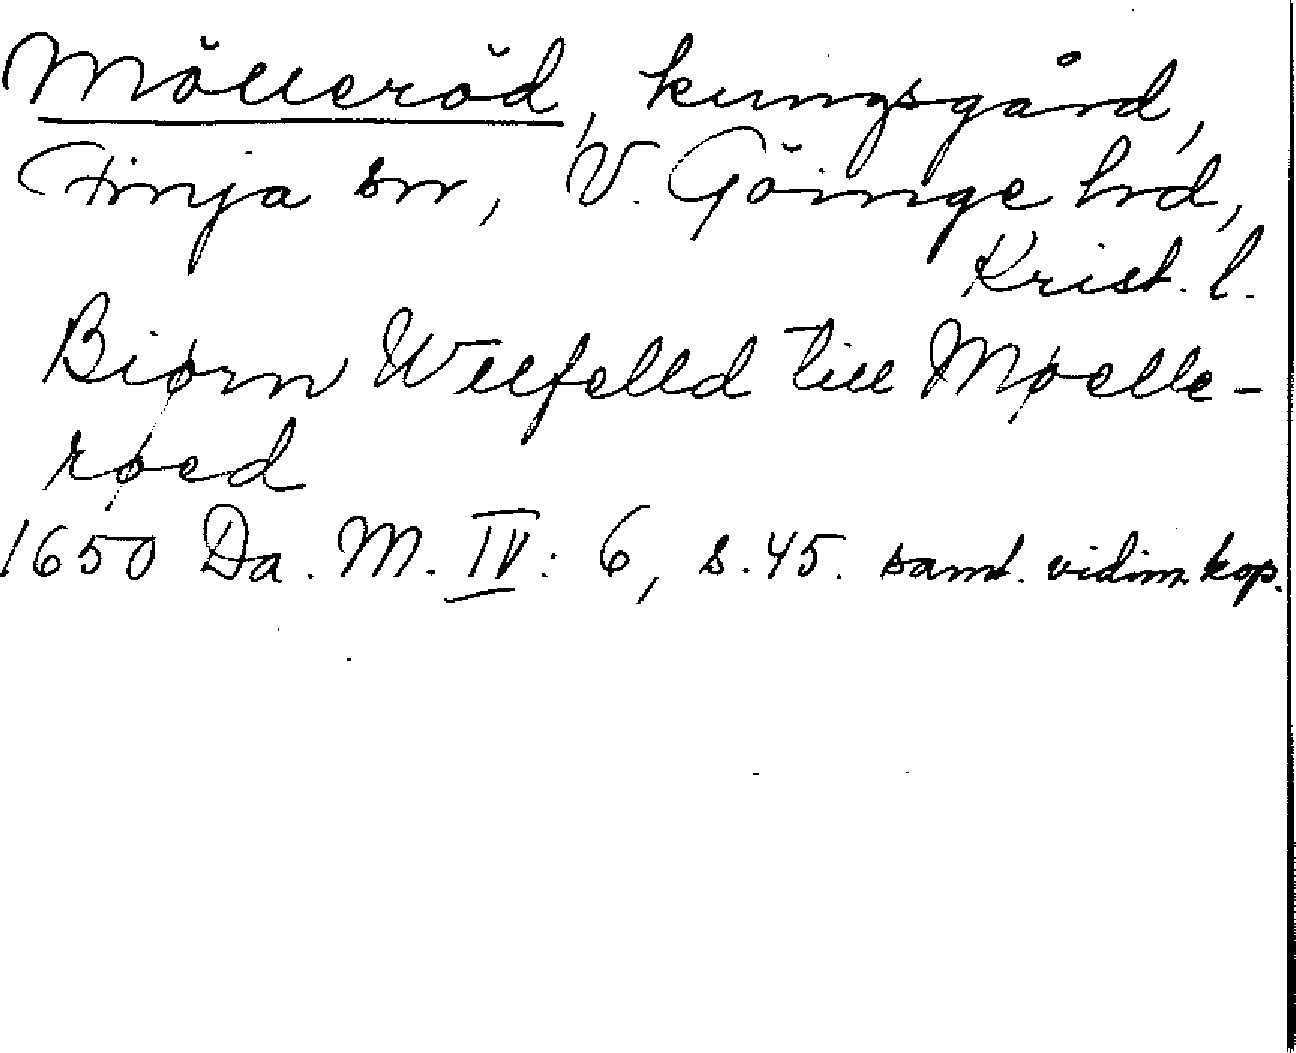 Mölleröd, kungsgård,
Finja sn, V. Göinge hd,
Krist. l.
Biørn Wllfelld till Møelle-
røed
1650 Da. M. IV: 6, s. 45. samt. vidim. kop.